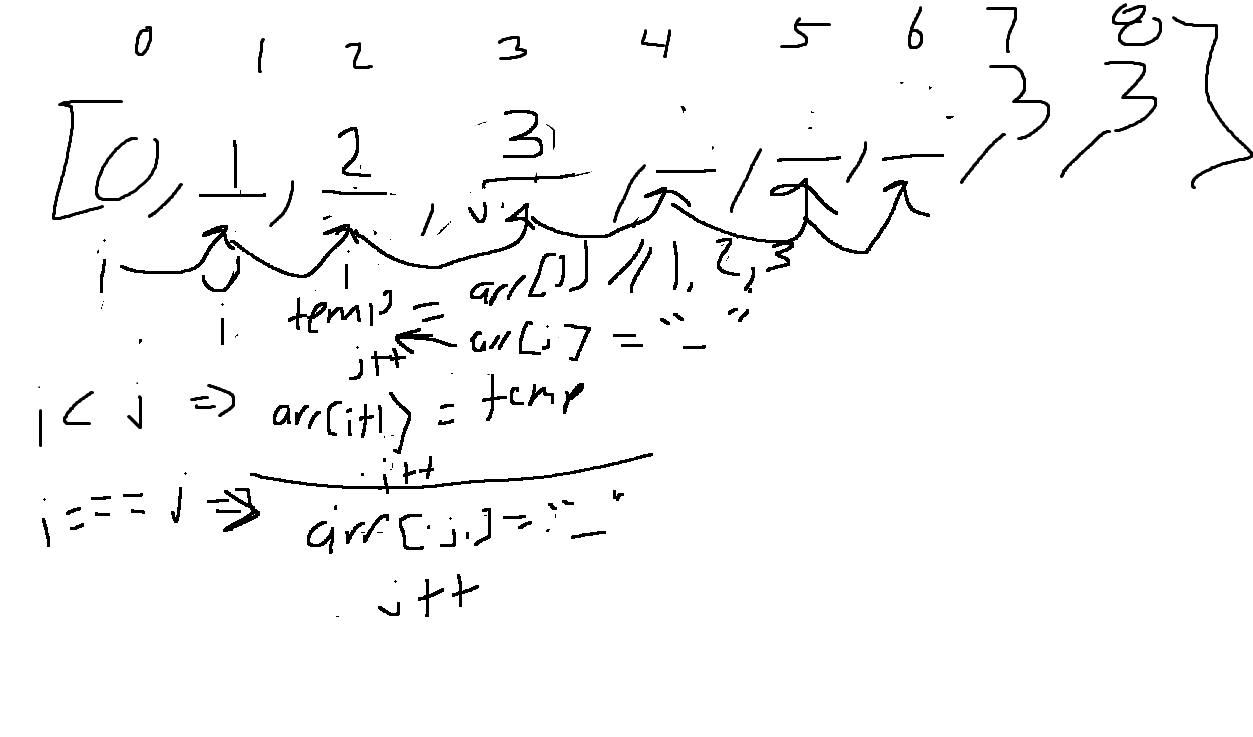 0 1 2 3 4 5 6 7 8
[0, 1, 2, 3, _, _, _, 3, 3]
i j
i i
temp = arr[j] // 1, 2, 3
j++ ← arr[j] = "_"
i < j => arr[i+1] = temp
i++
i === j => arr[j] = "_"
j++